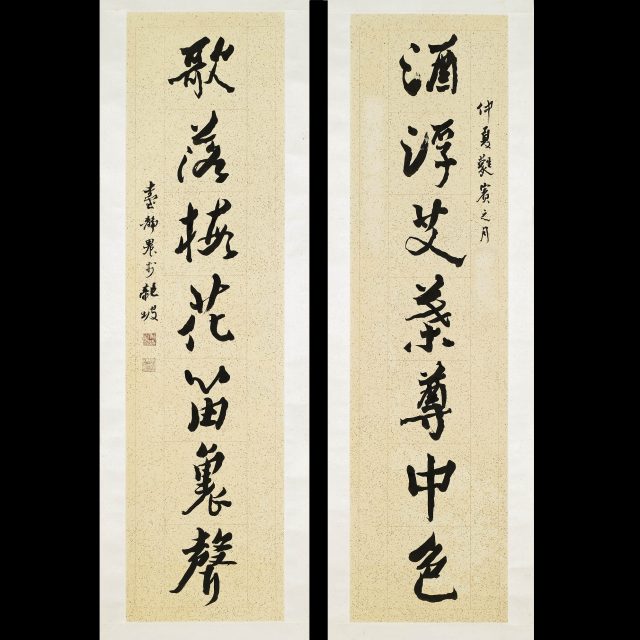 仲夏蕤賓之月
酒浮艾葉尊中色
歌落梅花笛裏聲
臺靜農於龍坡